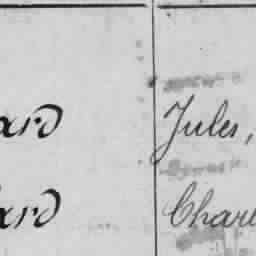 ard Jules,
ard Charl